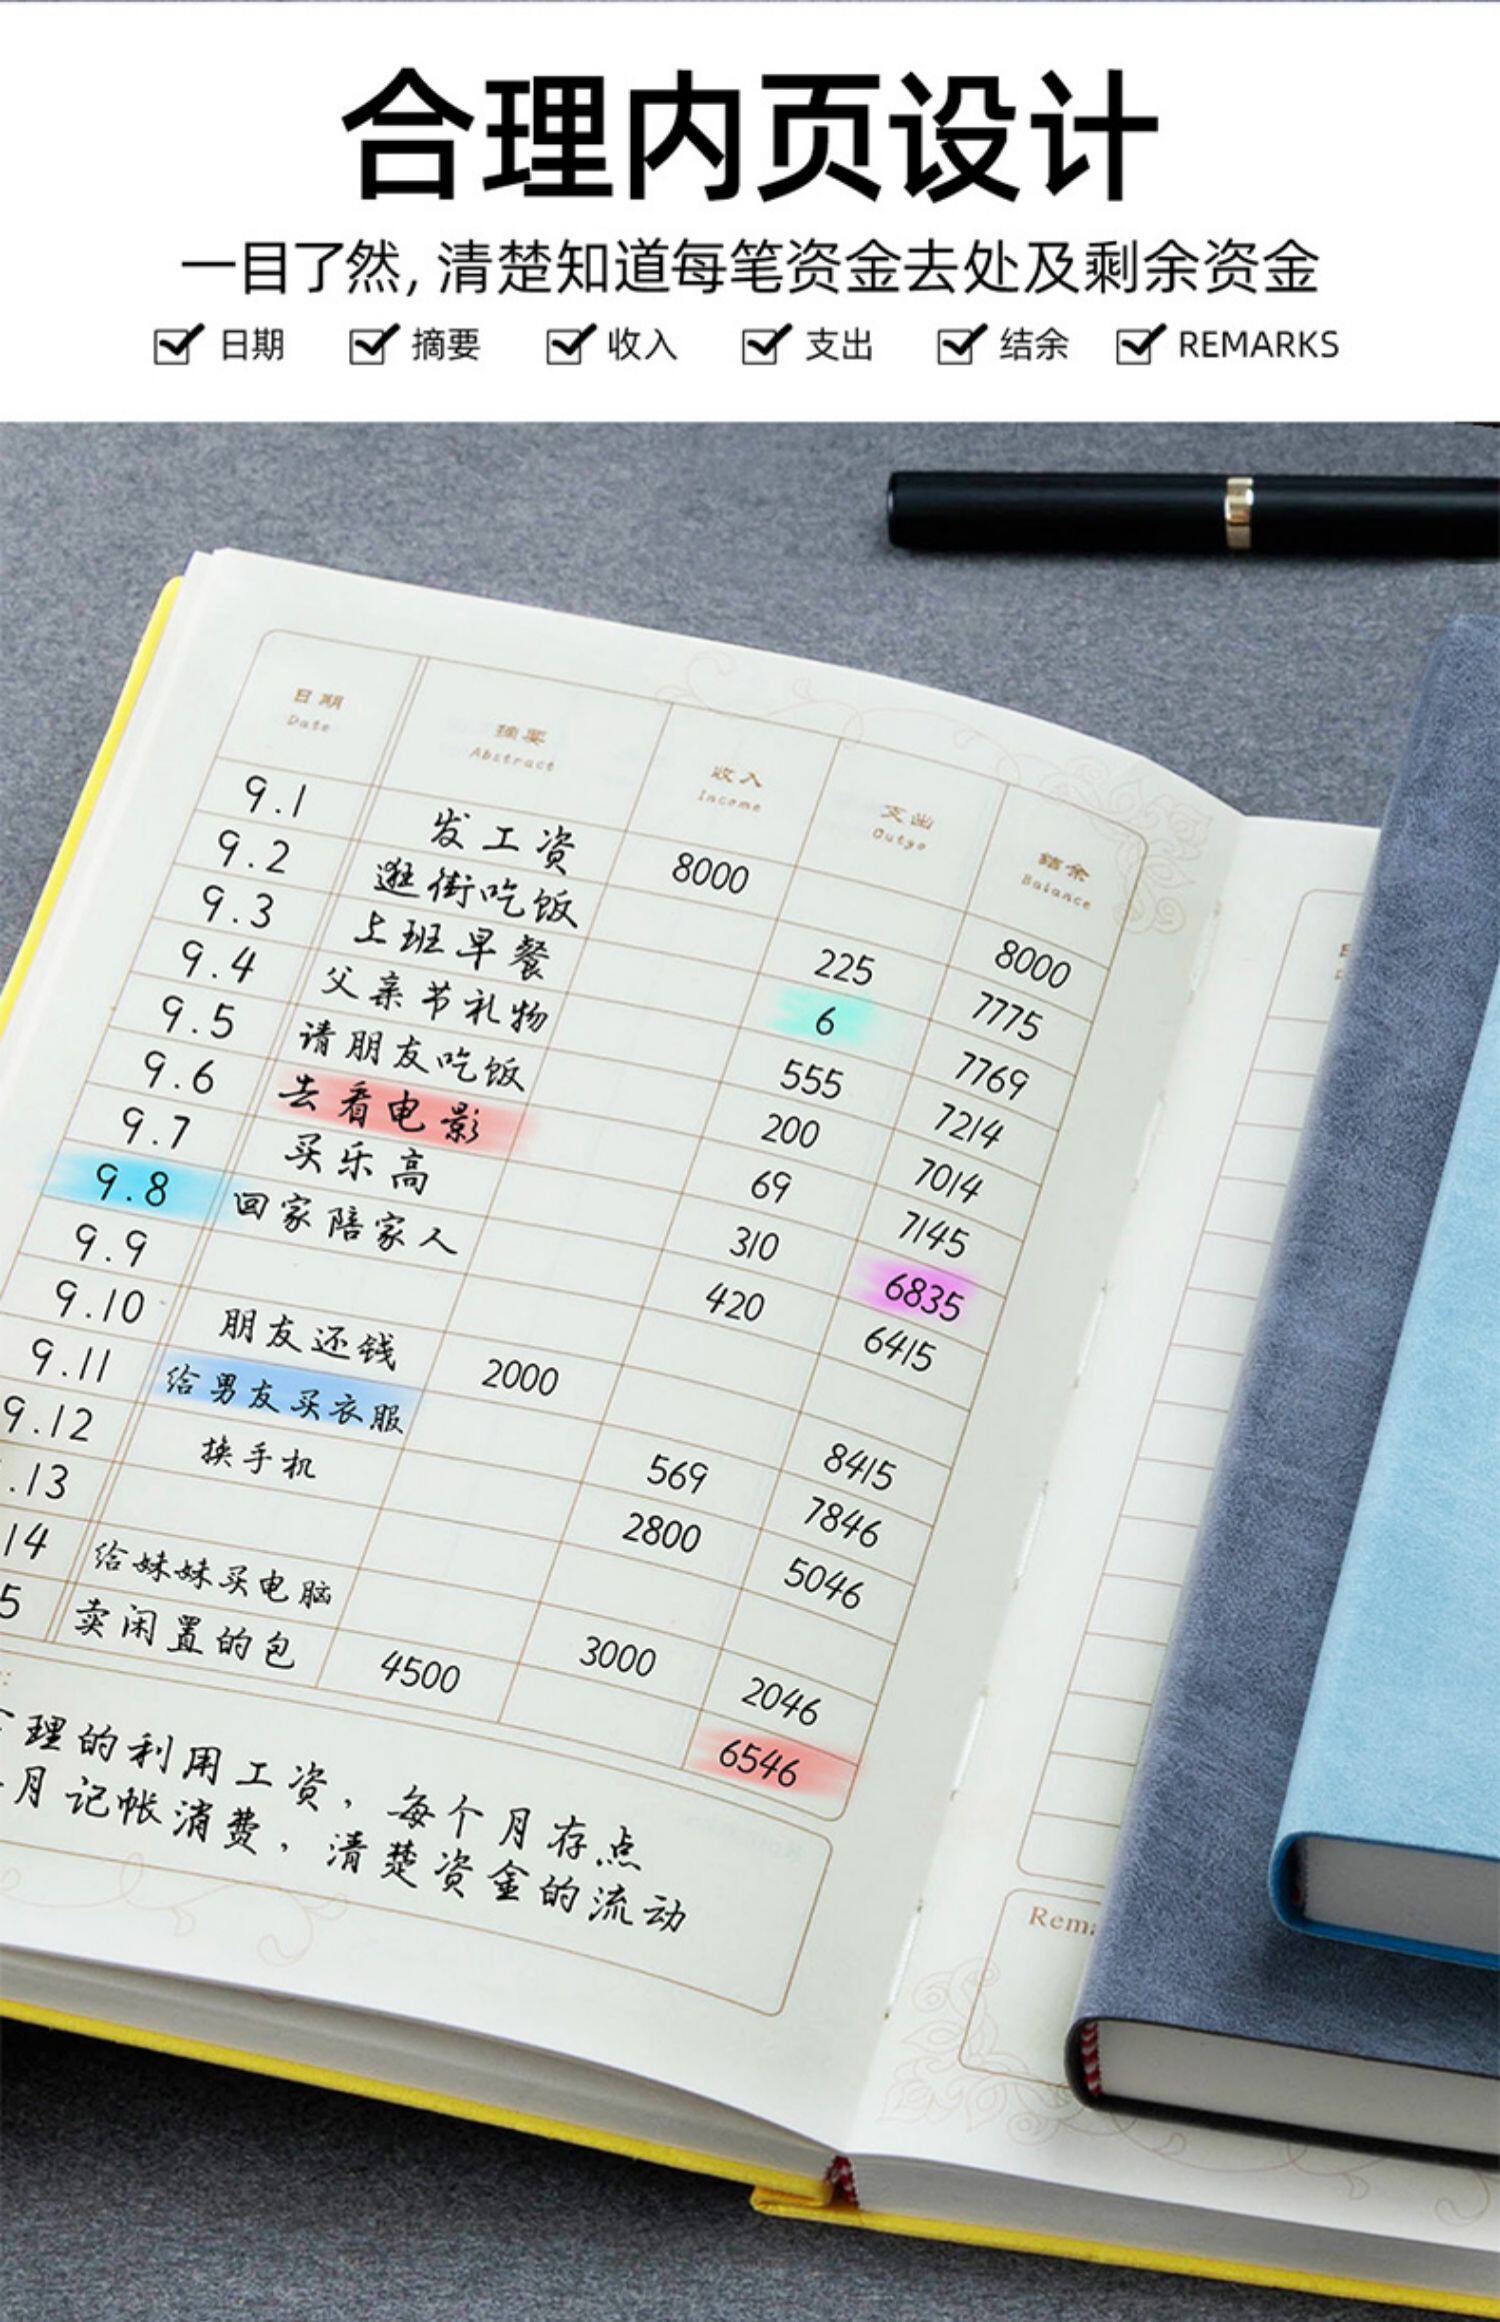 合理内页设计
一目了然, 清楚知道每笔资金去处及剩余资金
日期 摘要 收入 支出 结余 REMARKS
日期 摘要 收入 支出 结余
Date Abstract Income Outgo Balance
9.1 发工资 8000 8000
9.2 逛街吃饭 225 7775
9.3 上班早餐 6 7769
9.4 父亲节礼物 555 7214
9.5 请朋友吃饭 200 7014
9.6 去看电影 69 7145
9.7 买乐高 310 6835
9.8 回家陪家人 420 6415
9.9
9.10 朋友还钱 2000 8415
9.11 给男友买衣服 569 7846
9.12 换手机 2800 5046
.13
14 给妹妹买电脑 3000 2046
5 卖闲置的包 4500 6546
理的利用工资，每个月存点
月记帐消费，清楚资金的流动
Rema